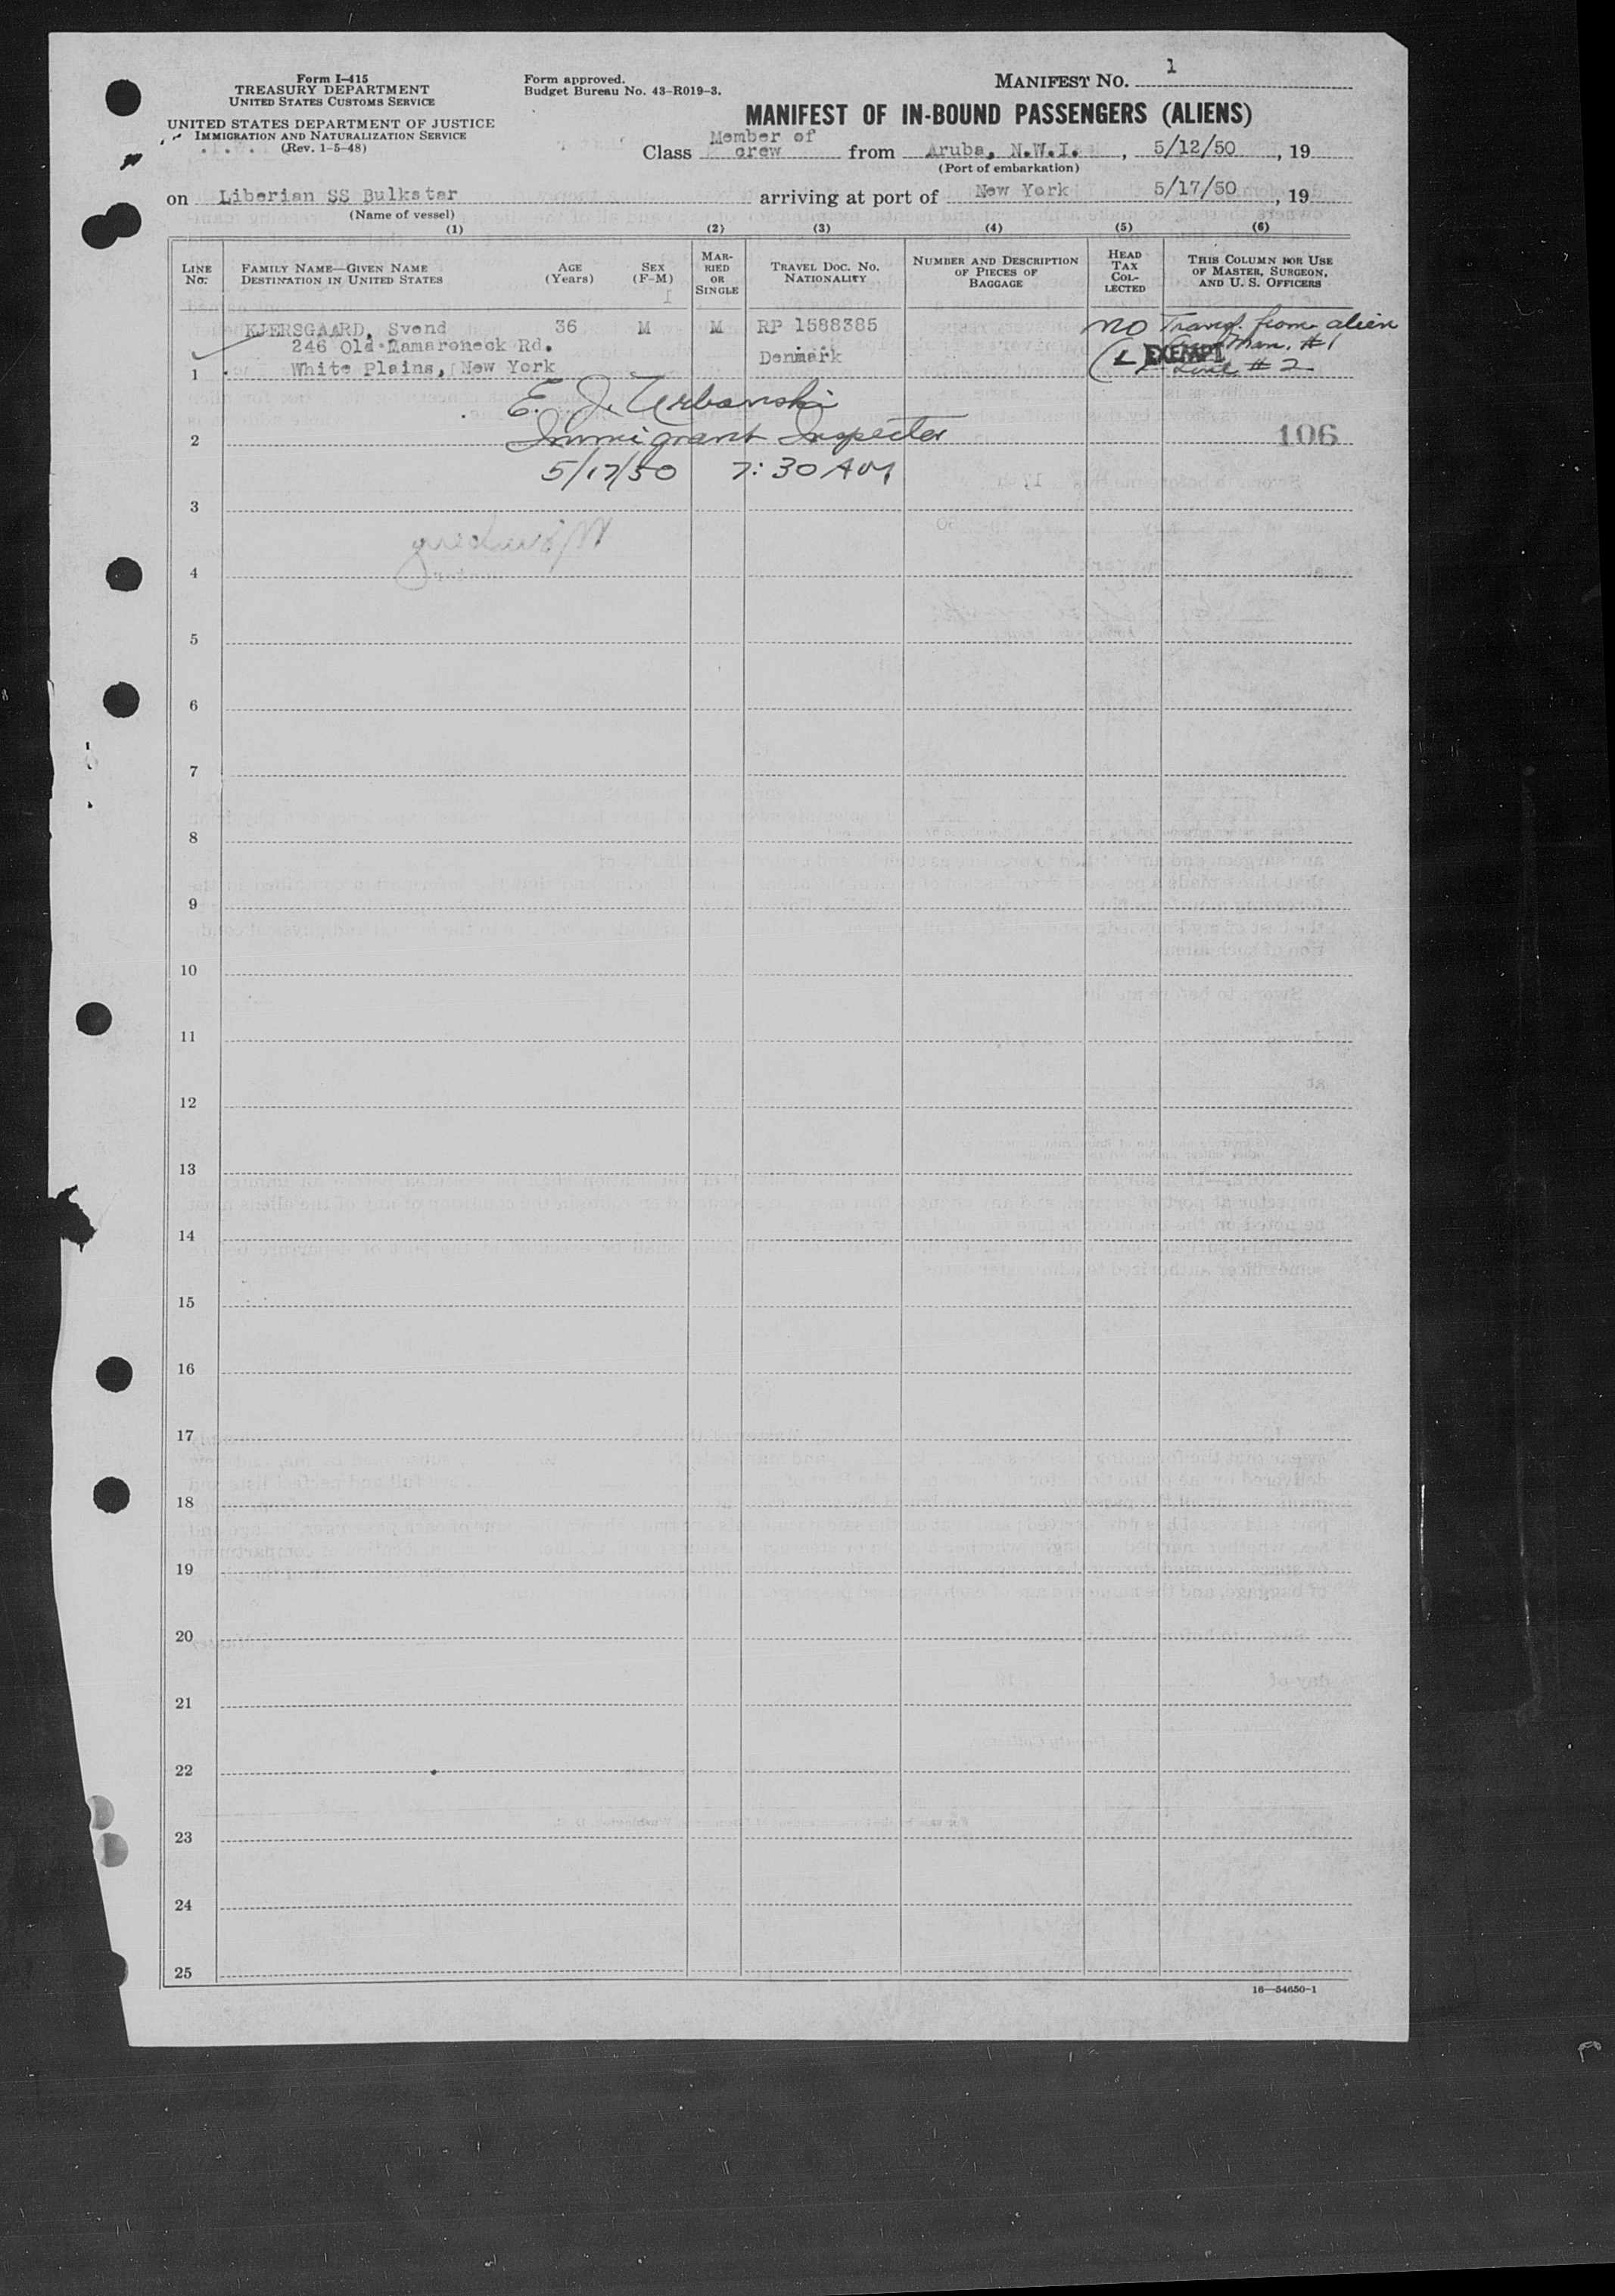 Form I-415
TREASURY DEPARTMENT
UNITED STATES CUSTOMS SERVICE
UNITED STATES DEPARTMENT OF JUSTICE
IMMIGRATION AND NATURALIZATION SERVICE
(Rev. 1-5-48)
Form approved.
Budget Bureau No. 43-R019-3.
MANIFEST NO. 1
MANIFEST OF IN-BOUND PASSENGERS (ALIENS)
Class Member of crew from Aruba, N.W.I. , 5/12/50 , 19
(Port of embarkation)
on Liberian SS Bulkstar arriving at port of New York 5/17/50 , 19
(Name of vessel)
(1) (2) (3) (4) (5) (6)
LINE NO. FAMILY NAME—GIVEN NAME DESTINATION IN UNITED STATES AGE (Years) SEX (F-M) MARRIED OR SINGLE TRAVEL DOC. NO. NATIONALITY NUMBER AND DESCRIPTION OF PIECES OF BAGGAGE HEAD TAX COLLECTED THIS COLUMN FOR USE OF MASTER, SURGEON, AND U. S. OFFICERS
KJERSGAARD, Svend 36 M M RP 1588385 no Transf. from alien
246 Old Mamaroneck Rd. Man. #1
Denmark EXEMPT
1 White Plains, New York Line #2
E. J. Urbanski
2 Immigrant Inspector 106
5/17/50 7:30 AM
3
4
5
6
7
8
9
10
11
12
13
14
15
16
17
18
19
20
21
22
23
24
25
16—54650-1